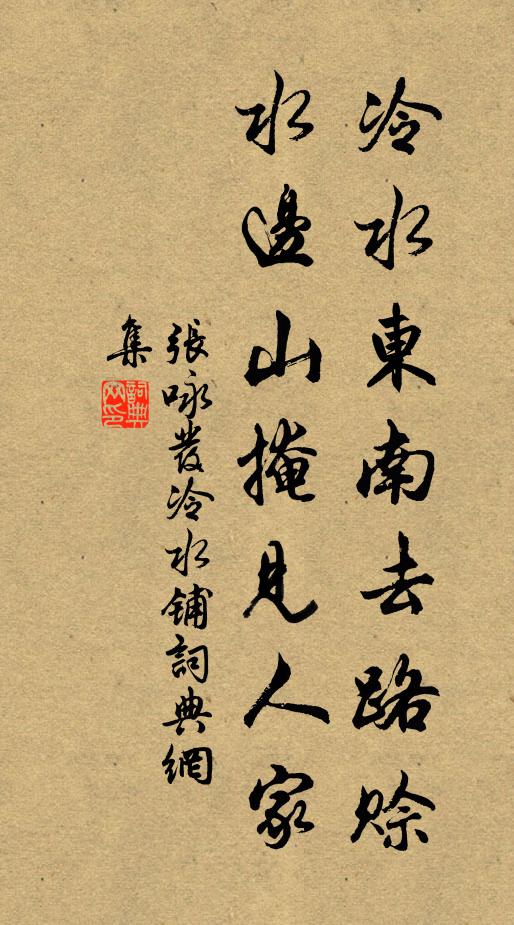 冷水東南去路賒
水邊山掩見人家
張咏發冷水鋪詞典網
集
詞典網印